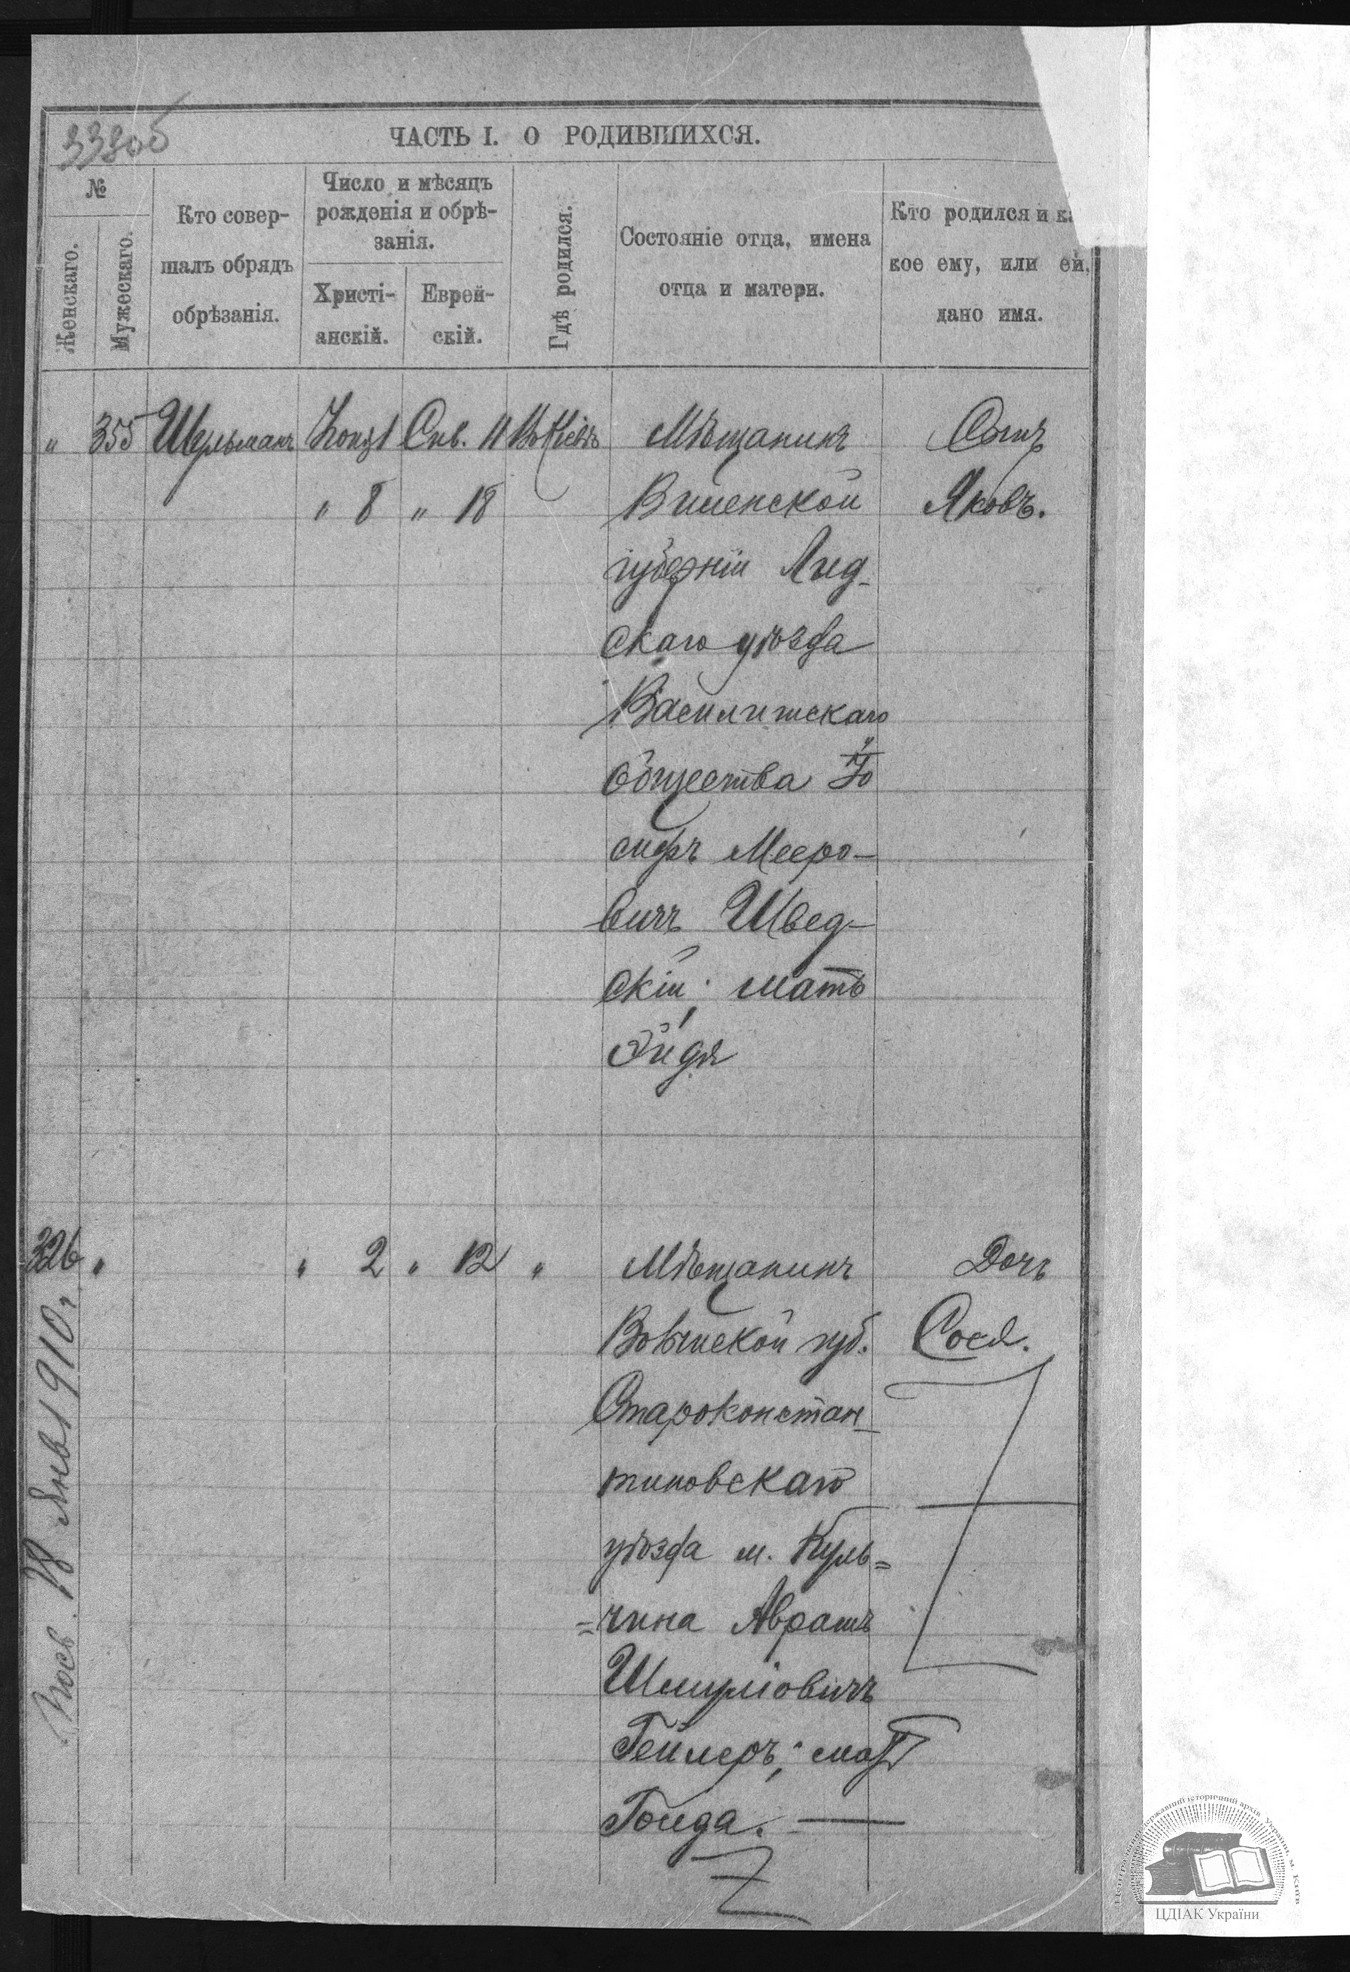 ЧАСТЬ I. О РОДИВШИХСЯ.
№
Женскаго.
Мужескаго.
Кто совер-
шалъ обрядъ
обрѣзанія.
Число и мѣсяцъ
рожденія и обрѣ-
занія.
Христі-
анскій.
Еврей-
скій.
Гдѣ родился.
Состояніе отца, имена
отца и матери.
Кто родился и ка
кое ему, или ей,
дано имя.
" 355 Шульманъ 1 11 Въ Кіевѣ Мѣщанинъ Сынъ
" 8 " 18 Виленской Яковъ.
губерніи Лид-
скаго уѣзда
Василишскаго
общества Іо
сифъ Мееро-
вичъ Швед-
скій; мать
Эйдя
326 " " 2 " 12 " Мѣщанинъ Дочь
Волынской губ. Сося.
Староконстан-
тиновскаго
уѣзда м. Куль=
=чина Аврамъ
Шмуліовичъ
Гейлеръ; мать
Гольда.
18 Янв 1910 г.
ЦДІАК України